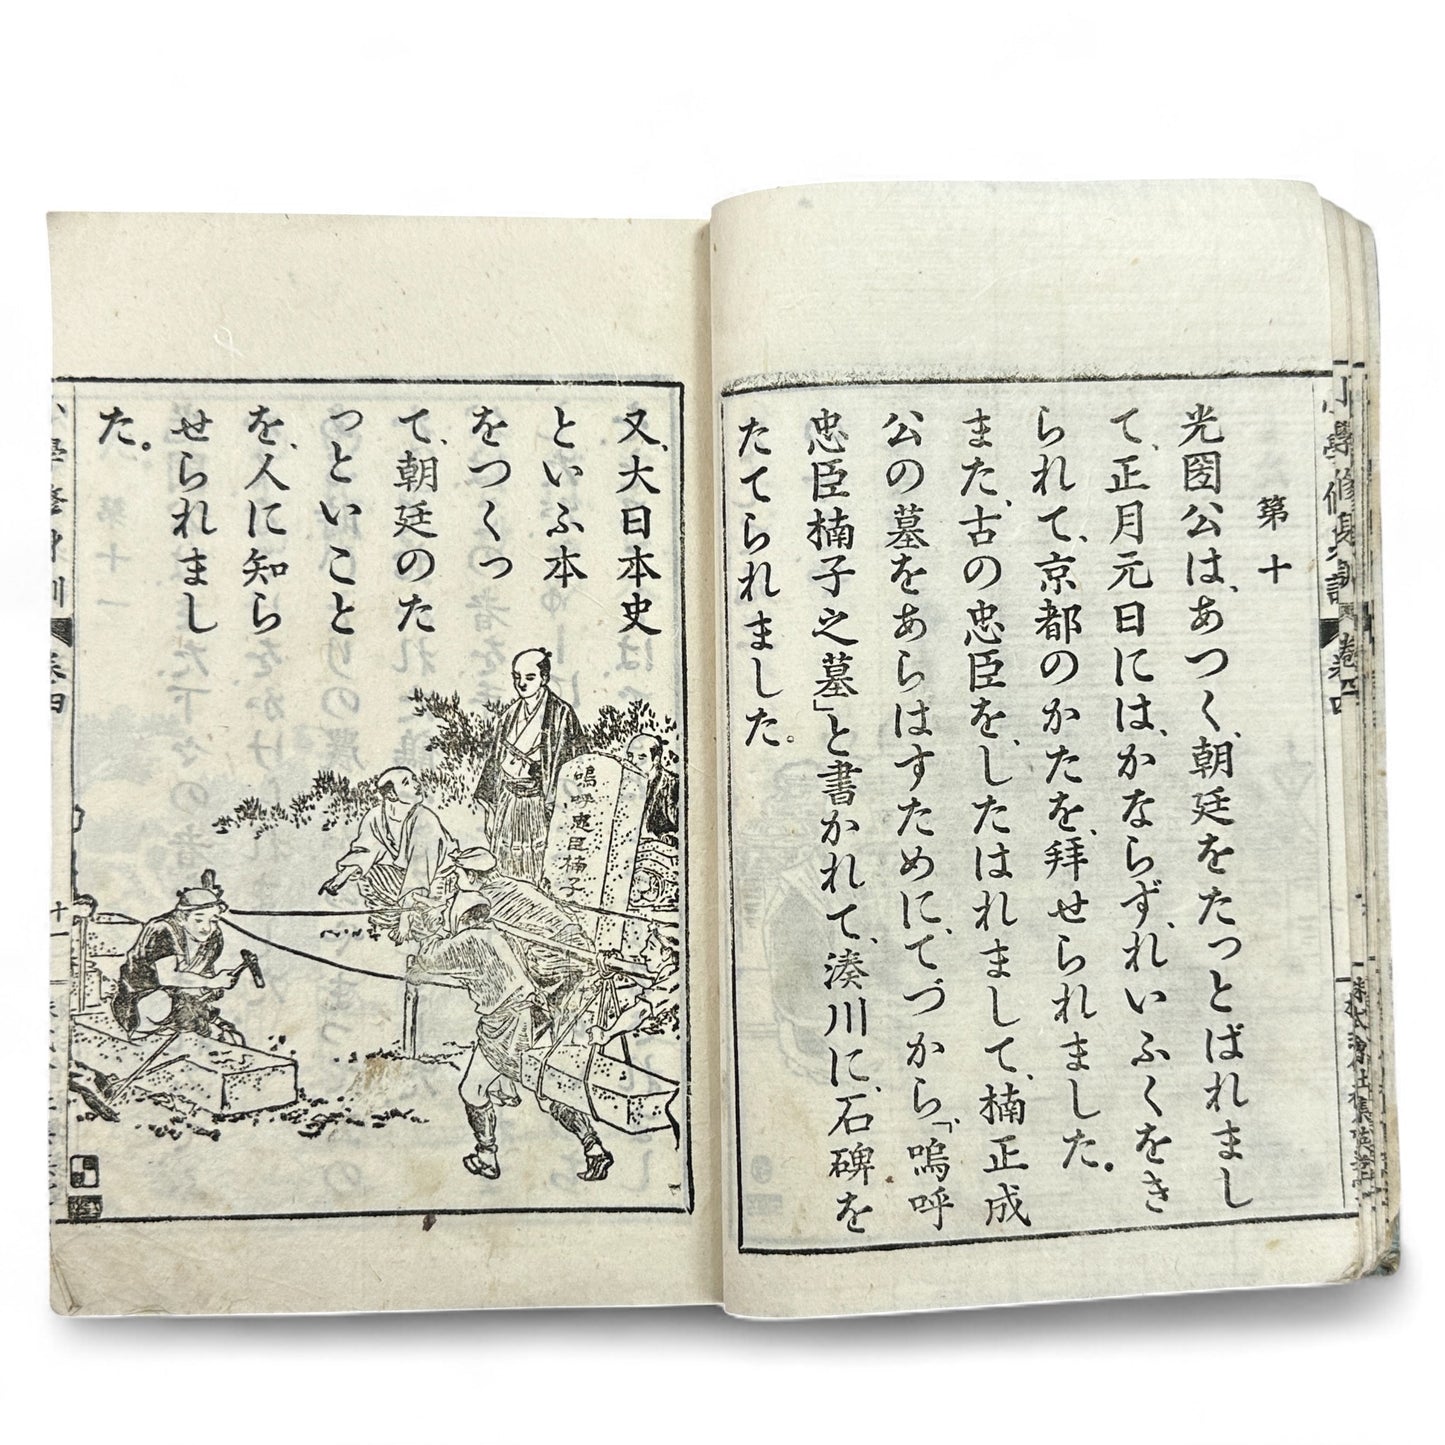 第十
光圀公は、あつく、朝廷をたつとばれまし
て、正月元日には、かならず、れいふくをき
られて、京都のかたを、拝せられました。
また、古の忠臣を、したはれまして、楠正成
公の墓をあらはすために、てづから「嗚呼
忠臣楠子之墓」と書かれて、湊川に、石碑を
たてられました。
又、大日本史
といふ本
をつくつ
て、朝廷のた
つといこと
を、人に知ら
せられまし
た。
嗚呼忠臣楠子
小學修身訓
卷四
十一